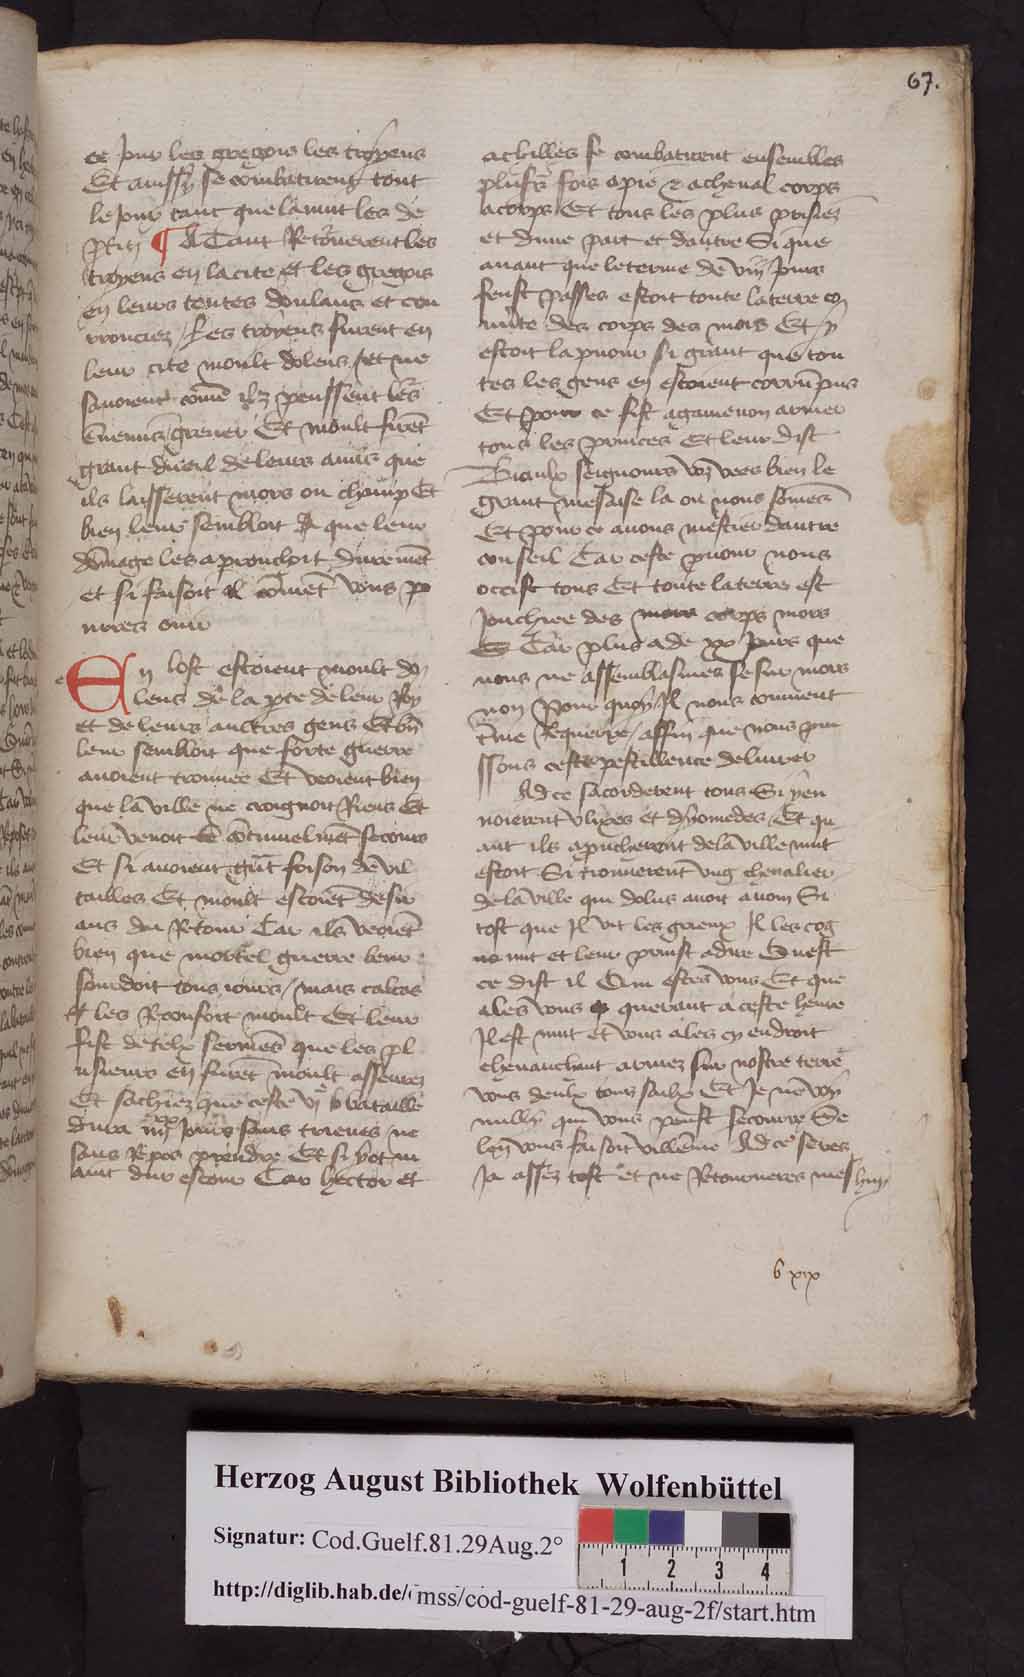 67.
ce Jour les gregois les troyens
Et aussy se combatirent tout
le Jour tant que la nuit les de
ptit ¶ A Tant Retournerent les
troyens en la cite et les gregois
en leurs tentes doulans et cou
rrouciez / Les troyens furent en
leur cite moult dolens / et ne
savoient come ilz peussent les
Ennemis grever Et moult firēt
grant dueil de leurs amis que
ils laisserent mors ou champ Et
bien leur sembloit que leur
dōmage les aprouchoit duremēt
et si faisoit il comēt vous po
urres ouir
En lost estoient moult do
lens de la pte de leur Roy
et de leurs aultres gens Et bn̄
leur sembloit que forte guerre
avoient trouvee Et veoient bien
que la ville ne craignoit Riens Et
leur venoit cōtinuelmēt secours
Et si avoient grāt foison de vi
tailles Et moult estoiēt desir
ans du Retour Car ils veoiēt
bien que mortel guerre leur
sourdoit tous iours / mais calcas
les Reconfort moult Et leur
fist de telx sermēs que les pl
useurs en furēt moult asseurez
Et sachiez que ceste bataille
dura Jours sans trieues ne
sans Repos prendre Et si y ot m
aint dur estour Car hector et
achilles se combatirent ensembles
plusrs fois a pie & a cheval corps
a corps Et tous les plus prisiez
et dune part et dautre Si que
avant que le terme de Jours
feust passes estoit toute la terre co
uv̄te des corps des mors Et y
estoit la puour si grant que tou
tes les gens en estoient corrūpus
Et pour ce fist agamenon armer
tous les princes Et leur dist
Biaulx seignours vo9 vees bien le
grant mesaise la ou nous sōmes
Et pour ce avons mestier dautre
conseil Car ceste puour nous
occist tous Et toute la terre est
Jonchiee des corps mors
Car plus a de xv Jours que
nous ne assemblasmes se sur mors
non Pour quoy Il nous convient
t̄ue Requerre / affin que nous pui
ssons ceste pestillence delivrer
Ad ce sacorderent tous Si y en
voierent Ulixes et dyomedes / Et qu
ant ils aprucherent de la ville nuit
estoit Si trouverent ung chevalier
de la ville qui dolus avoit a nom Si
tost que Il vit les grieux Il les cog
nut et leur prinst a dire Quest
ce dist il Qui estes vous Et que
ales vous querant a ceste heure
Il est nuit et vous ales cy endroit
chevauchant armez sur nostre terre
vous deulx tous saulx Et Je ne voy
nully qui vous peust secourre Se
len vous faisoit villēnie Ad ce seres
Ja assez tost et ne Retourneres mes huy
b xix
Herzog August Bibliothek Wolfenbüttel
Signatur: Cod.Guelf.81.29Aug.2°
http://diglib.hab.de/mss/cod-guelf-81-29-aug-2f/start.htm
1 2 3 4